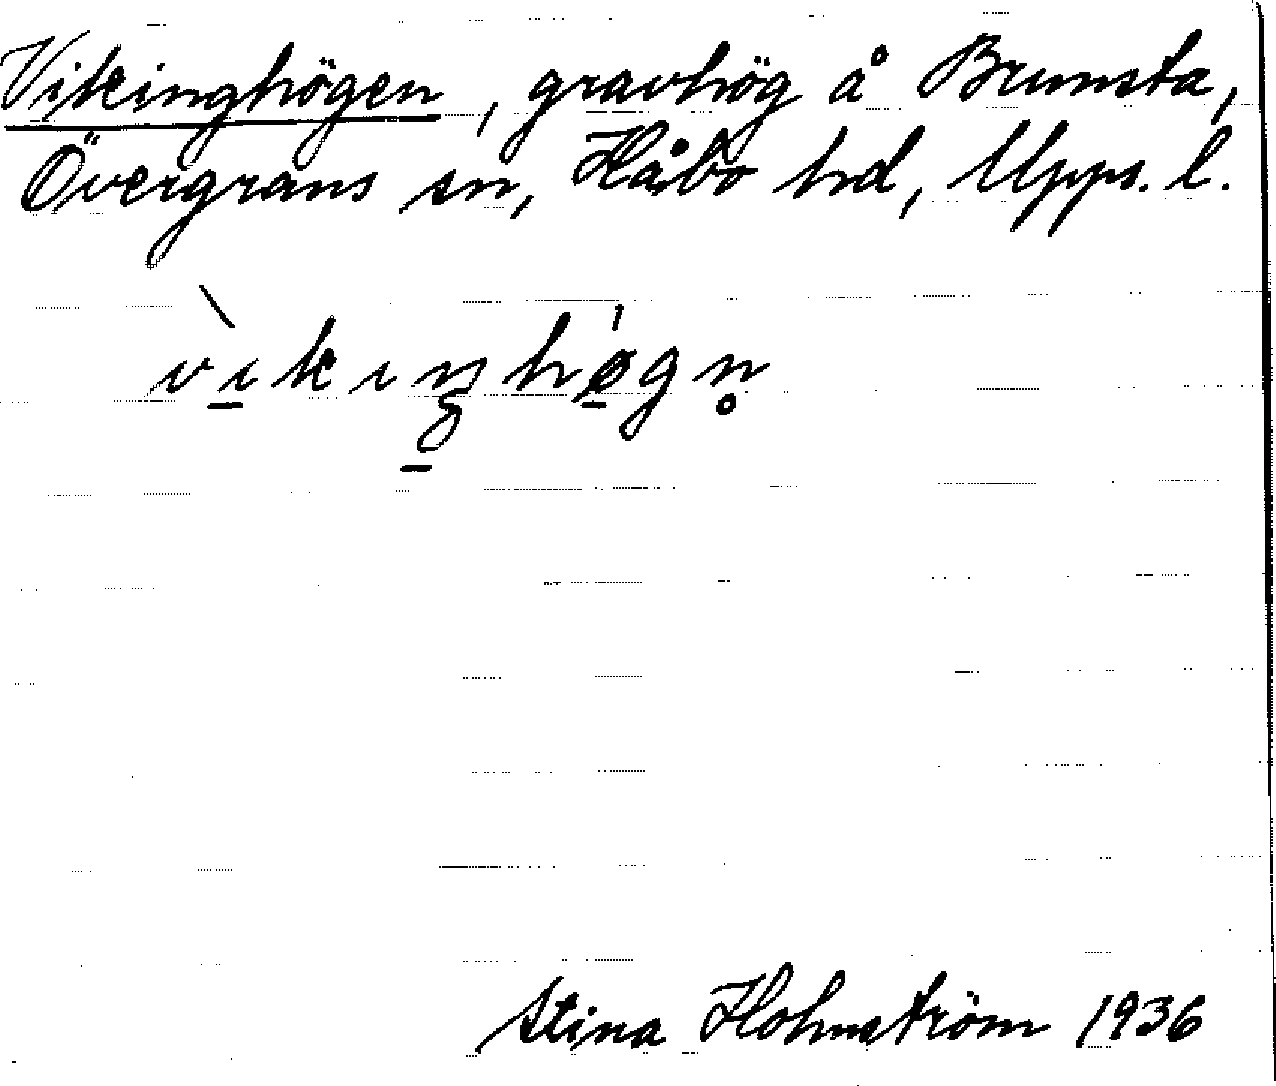 Vikinghögen, gravhög å Brunsta,
Övergrans sn, Håbo hd, Upps. l.
vìkiŋhǿgn̥
Stina Holmström 1936